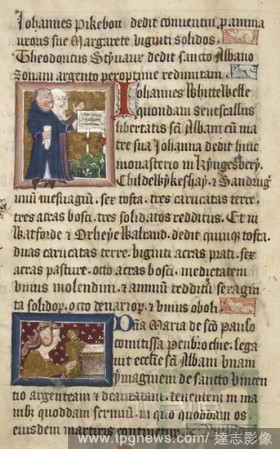 Johannes Pikebon dedit conventui, p anima
uxoris sue Margarete viginti solidos.
Theodoricus dedit sancto Albano
zonam argento peroptime redimitam.
Johannes Whitewelle
quondam senescallus
libertatis sci Albani cu ma
tre sua Johanna dedit huic
monasterio in
Childewykeshay, & Sandrug
unu mesuagiu, sex tofta, tres carucatas terre,
tres acras bosci, tres solidatos redditus. Et in
Watforde & Oxheye Walrand, dedit quinq tofta,
duas carucatas terre, viginti acras prati, sex
acras pasture, octo acras bosci, medietatem
unius molendini, & annuu redditu sexagin
ta solidor, octo denarior, & unius oboli.
Dna Maria de sco Paulo
comitissa penbrochie, lega
vit eccle sci Albani unam
ymaginem de sancto vincen
tio argenteam & deauratam, tenentem in ma
nib quoddam scriniu, in quo quoddam os
eiusdem martiris continetur.
www.tpgnews.com/ 達志影像